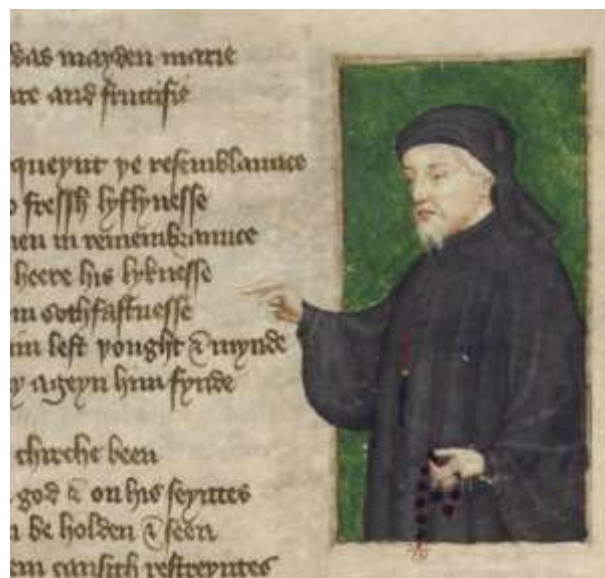 was mayden marie
and fructifie
queynt þe resemblaunce
fressh lyflynesse
in remembraunce
heere his lyknesse
sothfastnesse
left þought & mynde
ageyn him fynde
chirche been
god & on his seyntes
be holden & seen
causith restreyntes